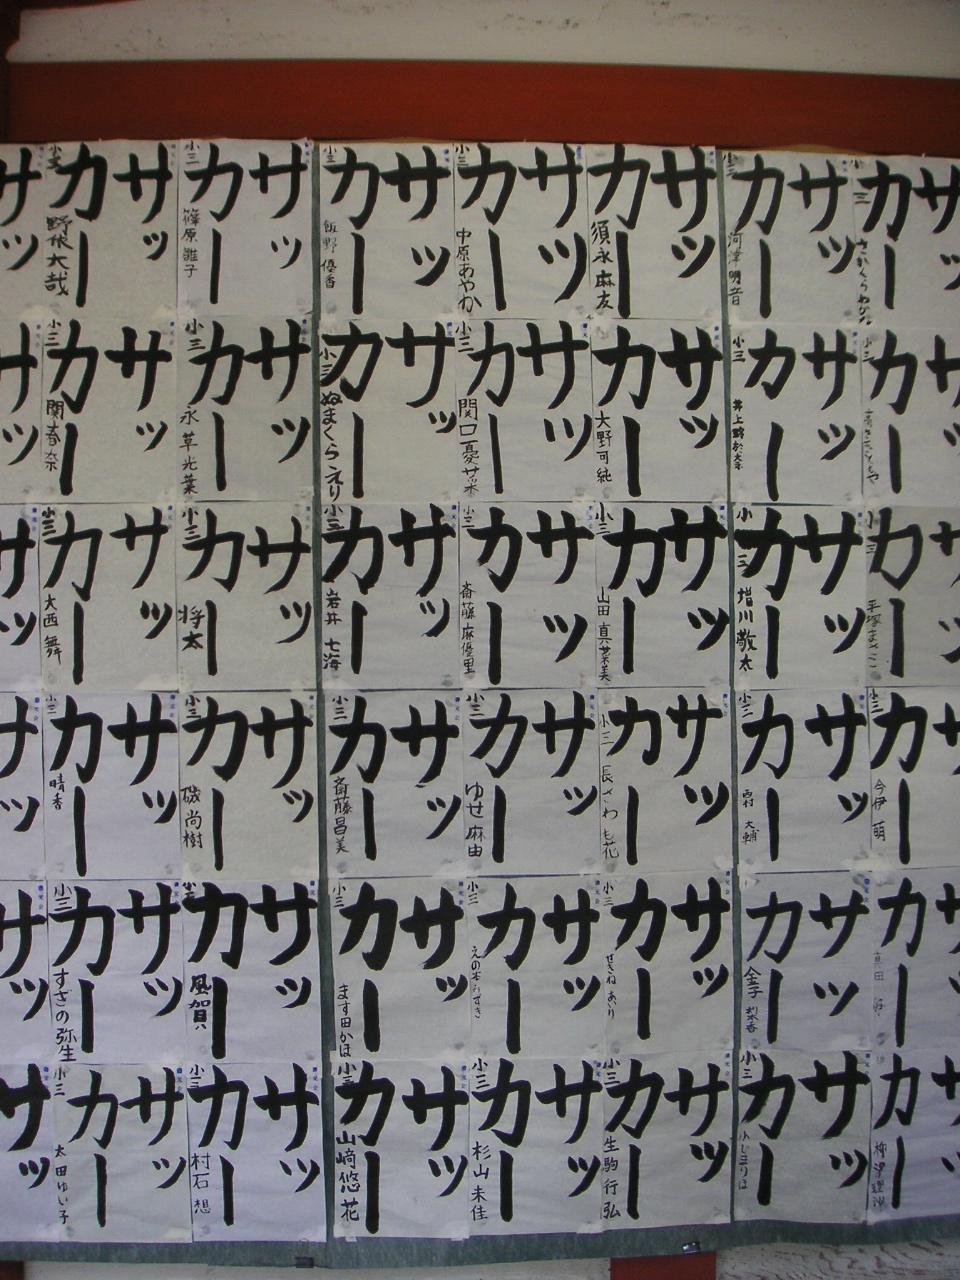 サッ
カー
小三 河津明音
サッ
カー
小三 須永麻友
サッ
カー
小三 中原あやか
サッ
カー
小三 飯野優香
サッ
カー
小三 篠原雛子
サッ
カー
小三
サッ
カー
小三
サッ
カー
小三
サッ
カー
大野可純
サッ
カー
小三
サッ
カー
小三 ぬまくらえり
サッ
カー
小三 永草光葉
サッ
カー
小三 関春奈
サッ
カー
小三
サッ
カー
小三 増川敬太
サッ
カー
小三 山田真菜美
サッ
カー
小三 斎藤麻優里
サッ
カー
小三 岩井七海
サッ
カー
小三 将太
サッ
カー
小三 大西舞
サッ
カー
小三 今伊萌
サッ
カー
小三 西村大輔
サッ
カー
小三 長ざわも花
サッ
カー
小三 ゆせ麻由
サッ
カー
小三 斎藤昌美
サッ
カー
小三 磯尚樹
サッ
カー
小三 晴香
サッ
カー
サッ
カー
金子梨香
サッ
カー
小三 せきねあいり
サッ
カー
小三
サッ
カー
小三 ます田かほ
サッ
カー
風賀
サッ
カー
小三 すざの弥生
サッ
カー
サッ
カー
小三
サッ
カー
小三 生駒行弘
サッ
カー
小三 杉山未佳
サッ
カー
小三 山崎悠花
サッ
カー
小三 村石想
サッ
カー
小三 太田ゆい子
サッ